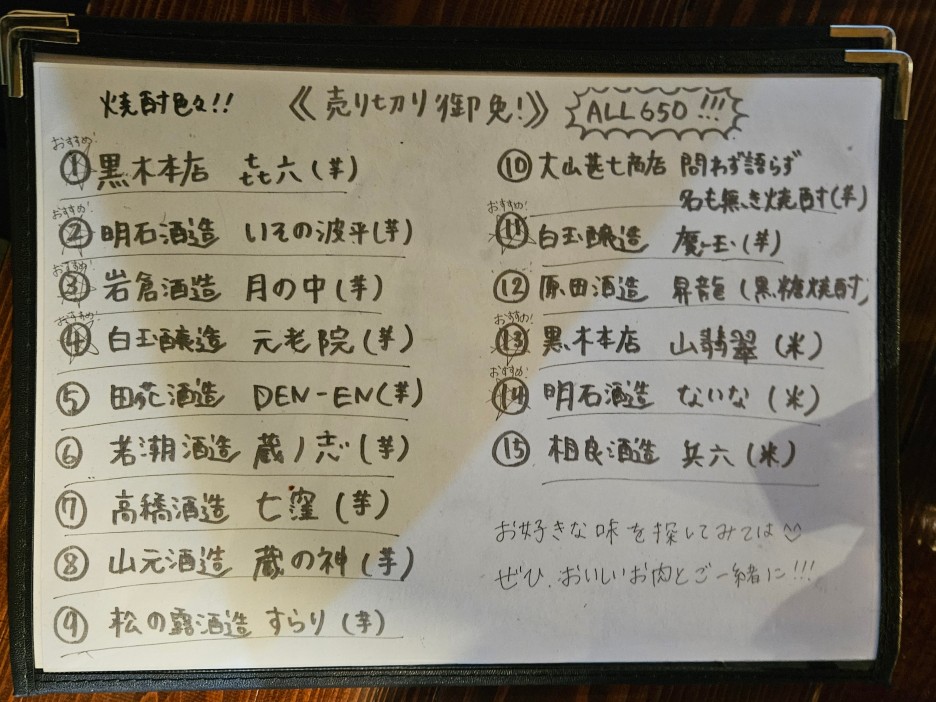 焼酎色々!!
《売り切り御免!》
ALL650!!!
おすすめ!
① 黒木本店 㐂六(芋)
おすすめ!
② 明石酒造 いその波平(芋)
おすすめ!
③ 岩倉酒造 月の中(芋)
おすすめ!
④ 白玉醸造 元老院(芋)
⑤ 田苑酒造 DEN-EN(芋)
⑥ 若潮酒造 蔵ノ志(芋)
⑦ 高橋酒造 七窪(芋)
⑧ 山元酒造 蔵の神(芋)
⑨ 松の露酒造 すらり(芋)
⑩ 大山甚七商店 問わず語らず
名も無き焼酎(芋)
おすすめ!
⑪ 白玉醸造 魔王(芋)
⑫ 原田酒造 昇龍(黒糖焼酎)
おすすめ!
⑬ 黒木本店 山翡翠(米)
おすすめ!
⑭ 明石酒造 ないな(米)
⑮ 相良酒造 兵六(米)
お好きな味を探してみては
ぜひ、おいしいお肉とご一緒に!!!